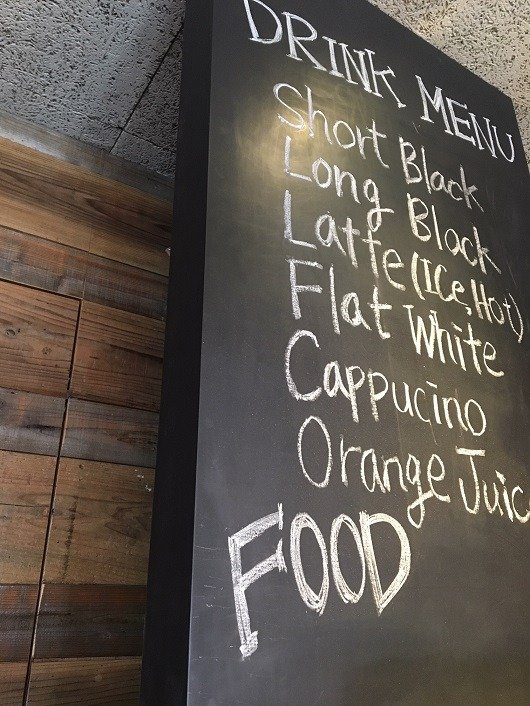 DRINK MENU
Short Black
Long Black
Latte (ICe, Hot)
Flat White
Cappucino
Orange Juic
FOOD